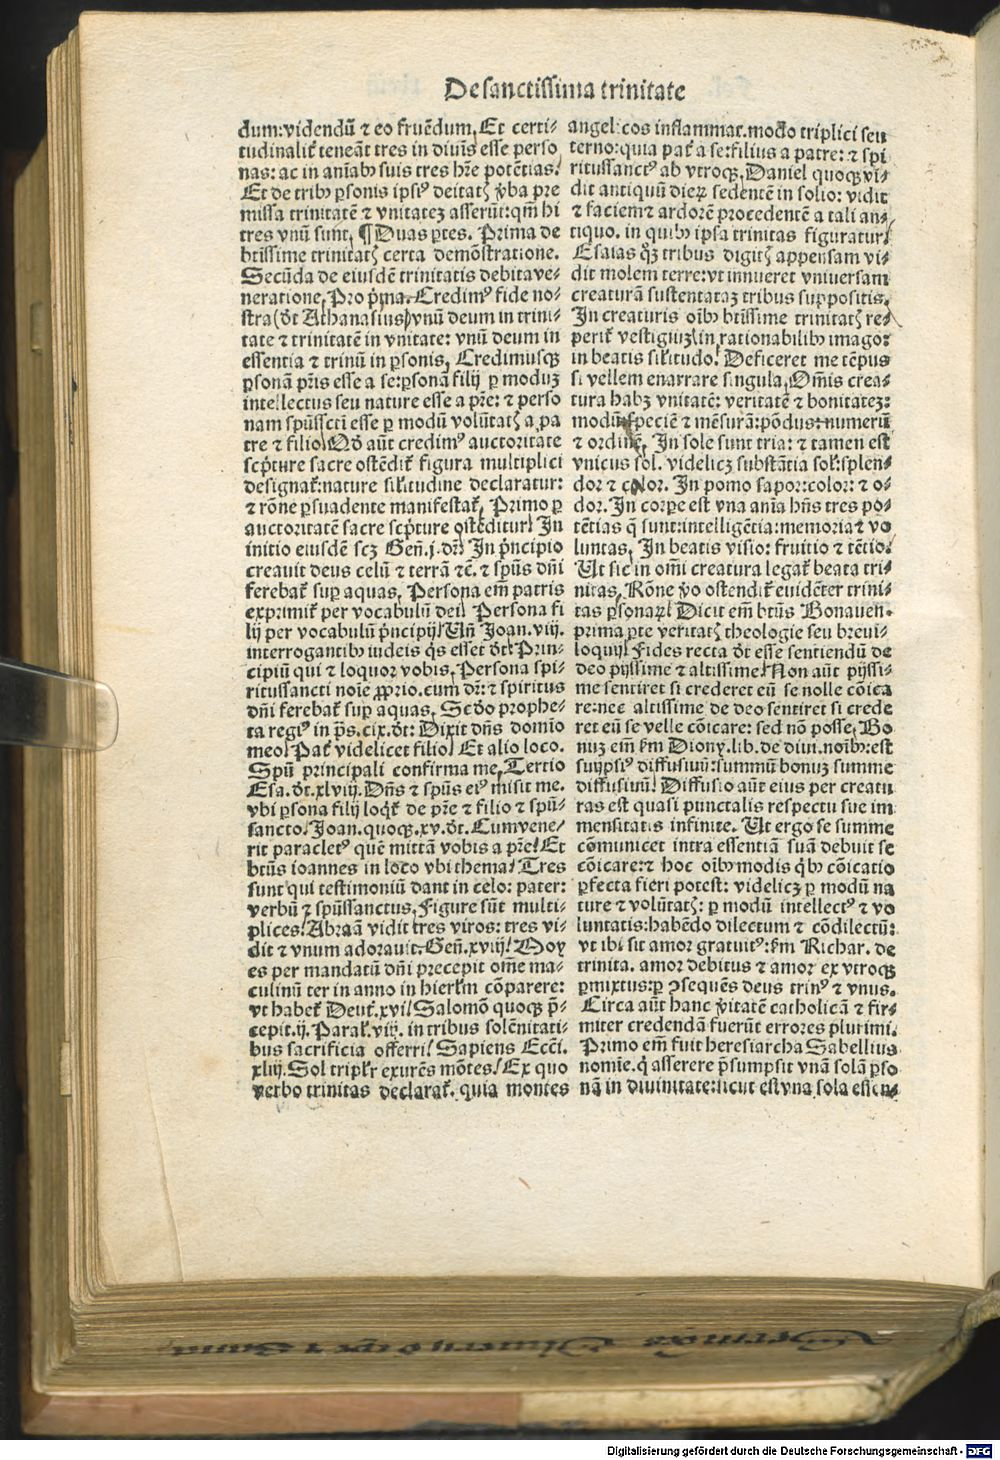 De sanctissima trinitate
dum: videndũ ⁊ eo fruẽdum, Et certi⸗
tudinalit̃ teneãt tres in diuĩs esse perso
nas: ac in aĩabꝰ suis tres hr̃e potẽtias.
Et de tribꝰ ꝑsonis ipsiꝰ deitatꝭ v̾ba pre
missa trinitatẽ ⁊ vnitateꝫ asserũt: qm̃ hi
tres vnũ sunt. ¶ Duas ꝑtes. Prima de
btĩssime trinitatꝭ certa demõstratione.
Secũda de eiusdẽ trinitatis debita ve⸗
neratione, Pro p̃ma. Credimꝰ fide no⸗
stra (vt Athanasius) vnũ deum in trini⸗
tate ⁊ trinitatẽ in vnitate: vnũ deum in
essentia ⁊ trinũ in ꝑsonis, Credimusqꝫ
ꝑsonã pr̃is esse a se: ꝑsonã filij ꝑ moduꝫ
intellectus seu nature esse a pr̃e: ⁊ perso
nam spũssctĩ esse ꝑ modũ volũtatꝭ a pa
tre ⁊ filio. Qď aũt credimꝰ auctoritate
scp̃ture sacre ostẽdit̃ figura multiplici
designat̃: nature sil̃itudine declaratur:
⁊ rõne ꝑsuadente manifestat̃, Primo ꝑ
auctoritatẽ sacre scp̃ture ostẽditur. In
initio eiusdẽ scꝫ Geñ. j. dr̃: In p̃ncipio
creauit deus celũ ⁊ terrã ⁊c̃. ⁊ sp̃us dñi
ferebat̃ suꝑ aquas, Persona em̃ patris
exprimit̃ per vocabulũ dei. Persona fi
lij per vocabulũ p̃ncipij. Vñ Joan. viij.
interrogantibꝰ iudeis qͥs esset dt̃: Prin⸗
cipiũ qui ⁊ loquor vobis, Persona spi⸗
ritussancti noĩe ꝓprio. cum dr̃: ⁊ spiritus
dñi ferebat̃ suꝑ aquas, Scďo prophe⸗
ta regiꝰ in p̃s. cix. dt̃: Dixit dñs domĩo
meo. Pat̃ videlicet filio. Et alio loco.
Spũ principali confirma me, Tertio
Esa. dt̃. xlviij. Dñs ⁊ sp̃us eiꝰ misit me.
vbi ꝑsona filij loqͥt̃ de pr̃e ⁊ filio ⁊ spũ⸗
sancto. Joan. quoqꝫ. xv. dt̃. Cum vene⸗
rit paracletꝰ quẽ mittã vobis a pr̃e. Et
btũs ioannes in loco vbi thema. Tres
sunt qui testimoniũ dant in celo: pater:
verbũ ⁊ spũssanctus, Figure sũt multi⸗
plices. Abraã vidit tres viros: tres vi⸗
dit ⁊ vnum adorauit. Geñ. xviij. Moy
es per mandatũ dñi precepit om̃e ma⸗
culinũ ter in anno in hierl̃m cõparere:
vt habet̃ Deut̃. xvi. Salomõ quoqꝫ p̃⸗
cepit. ij. Paral̃. viij. in tribus solẽnitati⸗
bus sacrificia offerri. Sapiens Ecc̃i.
xliij. Sol tripl̃r exurẽs mõtes. Ex quo
verbo trinitas declarat̃. quia montes
angelicos inflammat. modo triplici seu
terno: quia pat̃ a se: filius a patre: ⁊ spi
ritussanctꝰ ab vtroqꝫ, Daniel quoqꝫ vi⸗
dit antiquũ dieꝝ sedentẽ in solio: vidit
⁊ faciem ⁊ ardorẽ procedentẽ a tali an⸗
tiquo. in quibꝰ ipsa trinitas figuratur.
Esaias qͥꝫ tribus digitꝭ appensam vi⸗
dit molem terre: vt innueret vniuersam
creaturã sustentataꝫ tribus suppositis.
In creaturis oĩbꝰ btĩssime trinitatꝭ re⸗
perit̃ vestigiuꝫ. in rationabilibꝰ imago:
in beatis sil̃itudo. Deficeret me tẽpus
si vellem enarrare singula, Om̃is crea⸗
tura habꝫ vnitatẽ: veritatẽ ⁊ bonitateꝫ:
modũ speciẽ ⁊ mẽsurã: põdus: numerũ
⁊ ordinẽ, In sole sunt tria: ⁊ tamen est
vnicus sol. videlicꝫ substãtia sol: splen⸗
dor ⁊ calor. In pomo sapor: color: ⁊ o⸗
dor. In corꝑe est vna anĩa hñs tres po⸗
tẽtias q̃ sunt: intelligẽtia: memoria ⁊ vo
luntas, In beatis visio: fruitio ⁊ tẽtio.
Vt sic in om̃i creatura legat̃ beata tri⸗
nitas, Rõne v̾o ostendit̃ euidẽter trini⸗
tas ꝑsonaꝝ. Dicit em̃ btũs Bonauen⸗
prima ꝑte veritatꝭ theologie seu breui⸗
loquij. Fides recta dt̃ esse sentiendũ de
deo pijssime ⁊ altissime. Non aũt pijssi⸗
me sentiret si crederet eũ se nolle cõica
re: nec altissime de deo sentiret si crede
ret eũ se velle cõicare: sed nõ posse, Bo
nuꝫ em̃ ẜm Diony. lib. de diui. noĩbꝰ: est
suijpsiꝰ diffusiuũ: summũ bonuꝫ summe
diffusiuũ. Diffusio aũt eius per creatu
ras est quasi punctalis respectu sue im
mensitatis infinite. Vt ergo se summe
cõmunicet intra essentiã suã debuit se
cõicare: ⁊ hoc oĩbꝰ modis qͥbꝰ cõicatio
ꝑfecta fieri potest: videlicꝫ ꝑ modũ na
ture ⁊ volũtatꝭ: ꝑ modũ intellectꝰ ⁊ vo
luntatis: habẽdo dilectum ⁊ cõdilectũ:
vt ibi sit amor gratuitꝰ: ẜm Richar. de
trinita. amor debitus ⁊ amor ex vtroqꝫ
ꝑmixtus: ꝑ ꝯsequẽs deus trinꝰ ⁊ vnus.
Circa aũt hanc v̾itatẽ catholicã ⁊ fir⸗
miter credendã fuerũt errores plurimi.
Primo em̃ fuit heresiarcha Sabellius
nomĩe. qͥ asserere p̃sumpsit vnã solã ꝑso
nã in diuinitate: sicut est vna sola essen⸗
Digitalisierung gefördert durch die Deutsche Forschungsgemeinschaft - DFG